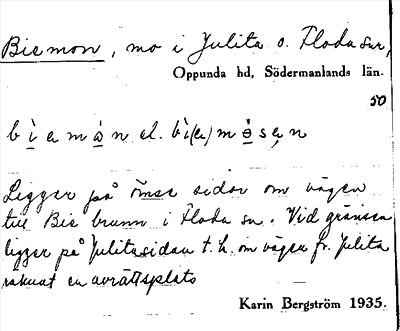 Biemon, mo i Julita o. Floda snr,
Oppunda hd, Södermanlands län.
50
b ì e m å n el. bì(e) m ò s e n
Ligger på ömse sidor om vägen
till Bie brunn i Floda sn. Vid gränsen
ligger på Julitasidan t. h. om vägen fr. Julita
räknat en avrättsplats
Karin Bergström 1935.